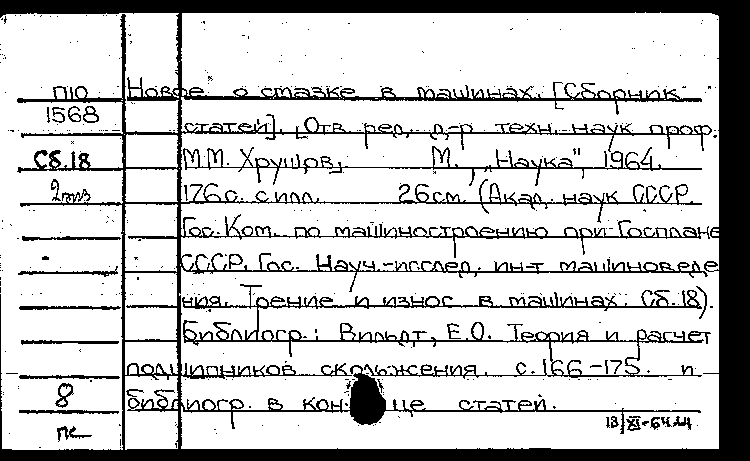 П10 Новое о смазке в машинах. [Сборник
1568 статей]. [Отв. ред. д-р техн. наук проф.
Сб.18 М.М. Хрущов]. М., „Наука", 1964.
2 экз 176 с. с илл. 26 см. (Акад. наук СССР.
Гос. Ком. по машиностроению при Госплане
СССР. Гос. Науч.-исслед. ин-т машиноведе
ния. Трение и износ в машинах. Сб. 18).
Библиогр.: Вильдт, Е.О. Теория и расчет
подшипников скольжения. с. 166-175. и
8 библиогр. в конце статей.
18/XI-64